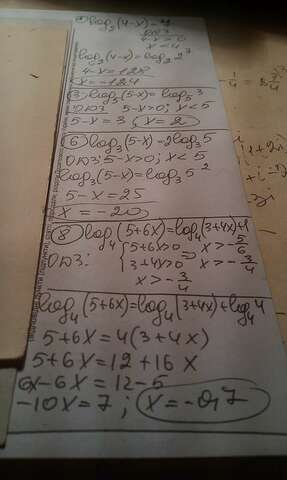 log₂(4-x)=7
ОДЗ
4-x>0
x<4
log₂(4-x)=log₂2⁷
4-x=128
x=-124
3 log₅(5-x)=log₅3
ОДЗ 5-x>0; x<5
5-x=3 x=2
6 log₃(5-x)=2log₃5
ОДЗ; 5-x>0; x<5
log₃(5-x)=log₃5²
5-x=25
x=-20
8 log₄(5+6x)=log₄(3+4x)+1
ОДЗ: {5+6x>0 x>-5/6
{3+4x>0 x>-3/4
x>-3/4
log₄(5+6x)=log₄(3+4x)+log₄4
5+6x=4(3+4x)
5+6x=12+16x
6x-6x=12-5
-10x=7; x=-0,7